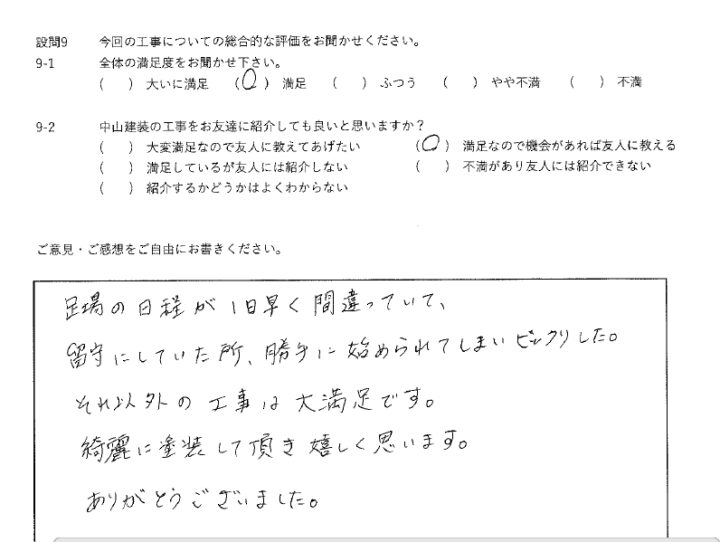 設問9 今回の工事についての総合的な評価をお聞かせください。
9-1 全体の満足度をお聞かせ下さい。
( ) 大いに満足 (○) 満足 ( ) ふつう ( ) やや不満 ( ) 不満
9-2 中山建装の工事をお友達に紹介しても良いと思いますか?
( ) 大変満足なので友人に教えてあげたい (○) 満足なので機会があれば友人に教える
( ) 満足しているが友人には紹介しない ( ) 不満があり友人には紹介できない
( ) 紹介するかどうかはよくわからない
ご意見・ご感想をご自由にお書きください。
足場の日程が1日早く間違っていて、
留守にしていた所、勝手に始められてしまいビックリした。
それ以外の工事は大満足です。
綺麗に塗装して頂き嬉しく思います。
ありがとうございました。